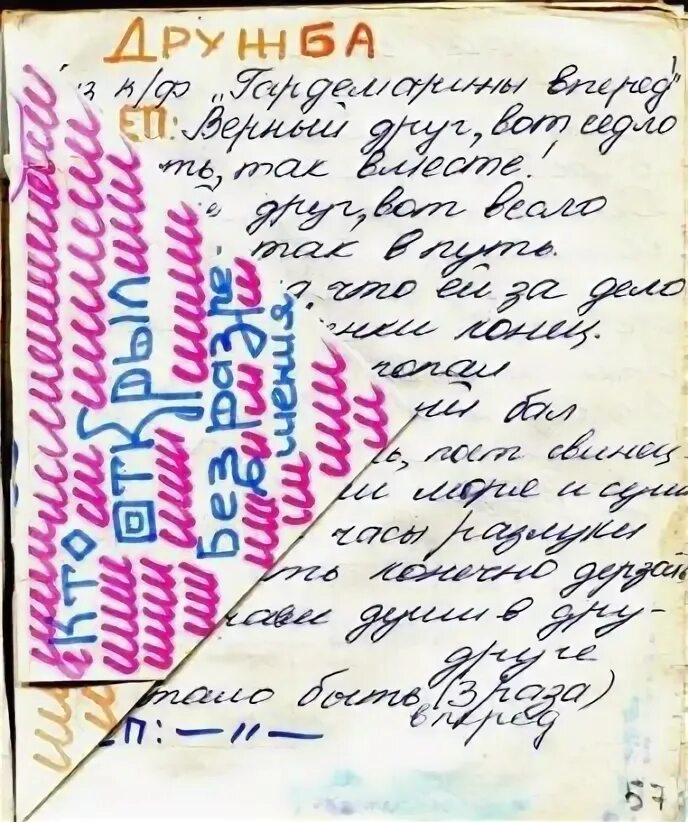 ДРУЖБА
из к/ф „Гардемарины вперед!"
ЕП: Верный друг, вот седло
ть, так вместе!
й друг, вот весло
так в путь.
а, что ей за дело
енки конец.
попал
ий бал
ь, пост свинец-
ии море и суши
часы разлуки
ть конечно дерзать
наши души в дру-
друге
тало быть (3 раза)
вперед
ЕП: — „ —
57
Кто
открыл
без разре
шения